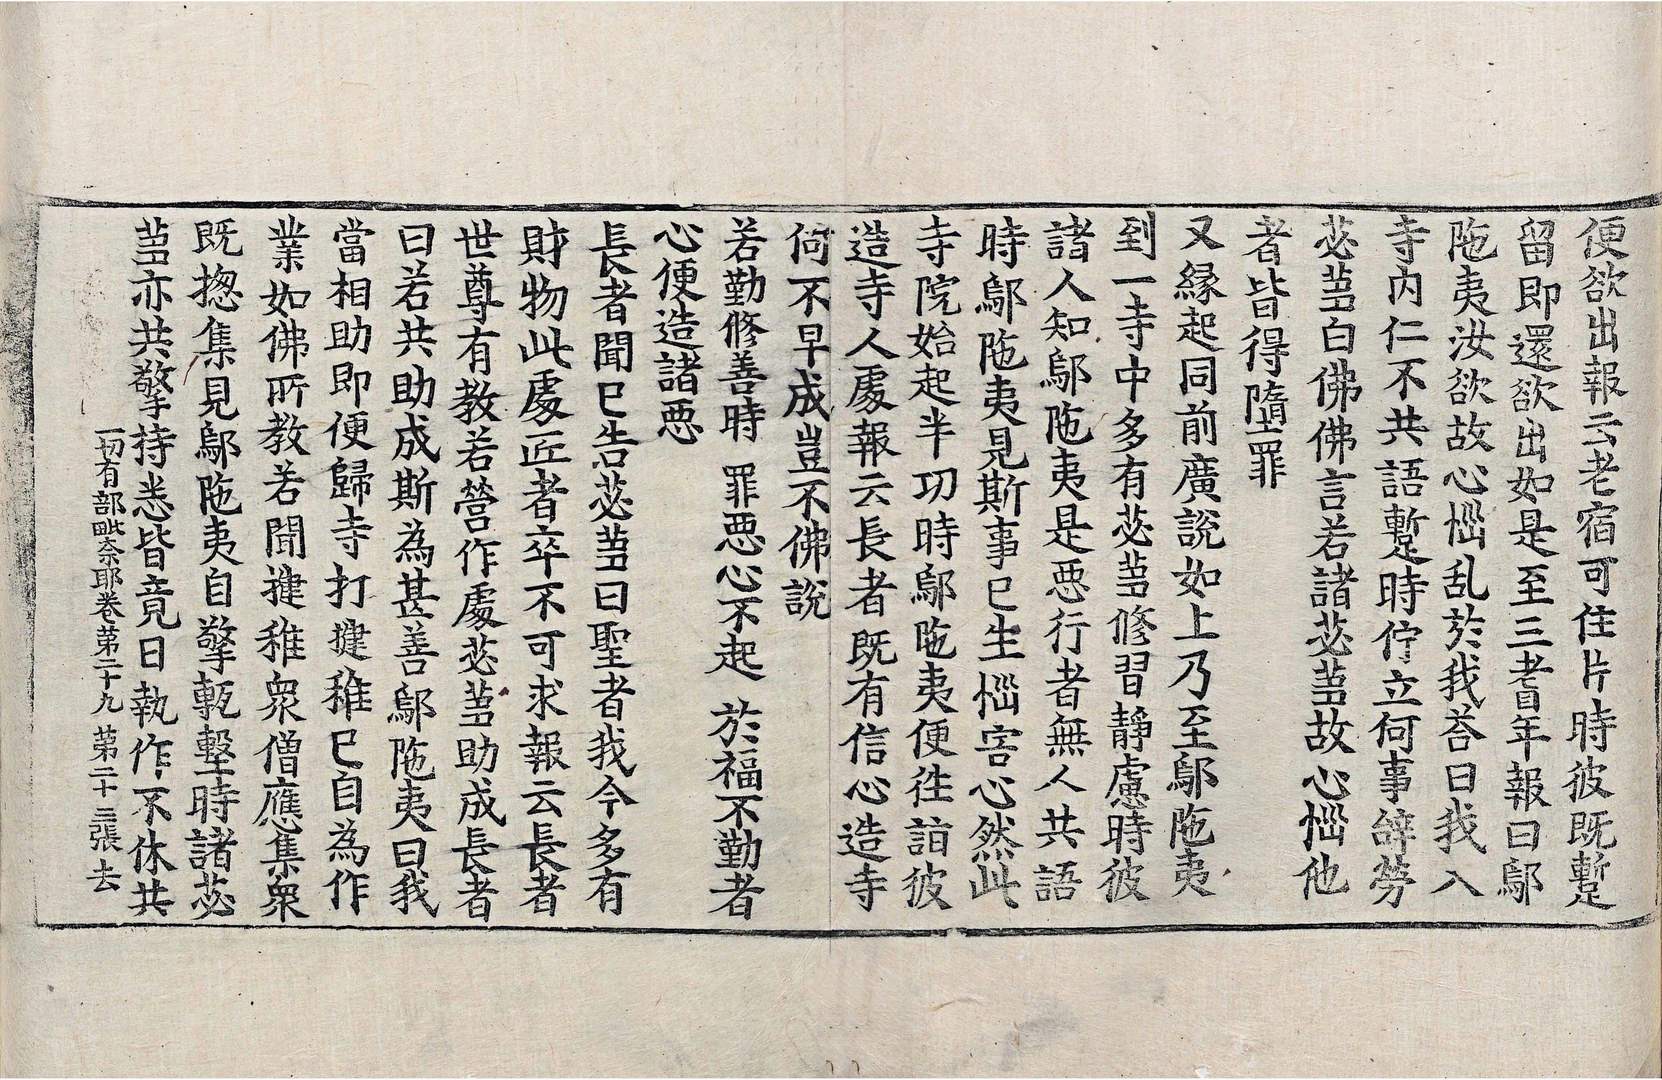 便欲出報云老宿可住片時彼既蹔
留即還欲出如是至三耆年報曰鄔
陁夷汝欲故心惱乱於我荅曰我入
寺内仁不共語蹔時佇立何事辝勞
苾蒭白佛佛言若諸苾蒭故心惱他
者皆得墮罪
又緣起同前廣說如上乃至鄔陁夷
到一寺中多有苾蒭修習靜慮時彼
諸人知鄔陁夷是惡行者無人共語
時鄔陁夷見斯事已生惱害心然此
寺院始起半功時鄔陁夷便往詣彼
造寺人處報云長者既有信心造寺
何不早成豈不佛說
若勤修善時 罪惡心不起 於福不勤者
心便造諸惡
長者聞已告苾蒭曰聖者我今多有
財物此處匠者卒不可求報云長者
世尊有教若營作處苾蒭助成長者
曰若共助成斯為甚善鄔陁夷曰我
當相助即便歸寺打揵稚已自為作
業如佛所教若聞揵稚眾僧應集眾
既揔集見鄔陁夷自擎甎墼時諸苾
蒭亦共擎持悉皆竟日執作不休共
一切有部毗奈耶卷苐二十九 苐二十三張 去